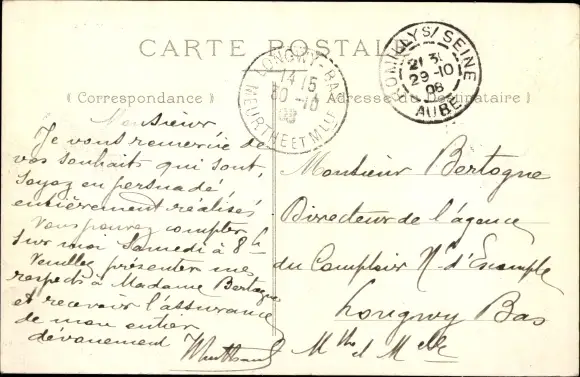 CARTE POSTALE
(Correspondance)
Adresse du Destinataire)
LONGWY-BAS
14 15
30 -10
08
MEURTHE ET MLLE
ROMILLY S/ SEINE
21 31
29 -10
08
AUBE
Monsieur
Je vous remercie de
vos souhaits qui sont,
soyez en persuadé,
entièrement réalisés
Vous pouvez compter
sur moi Samedi à 8h
Veuillez présenter mes
respects à Madame Bertogne
et recevoir l'assurance
de mon entier
dévouement
Monsieur Bertogne
Directeur de l'agence
du Comptoir N. d'Escompte
Longwy Bas
Mthe et Melle